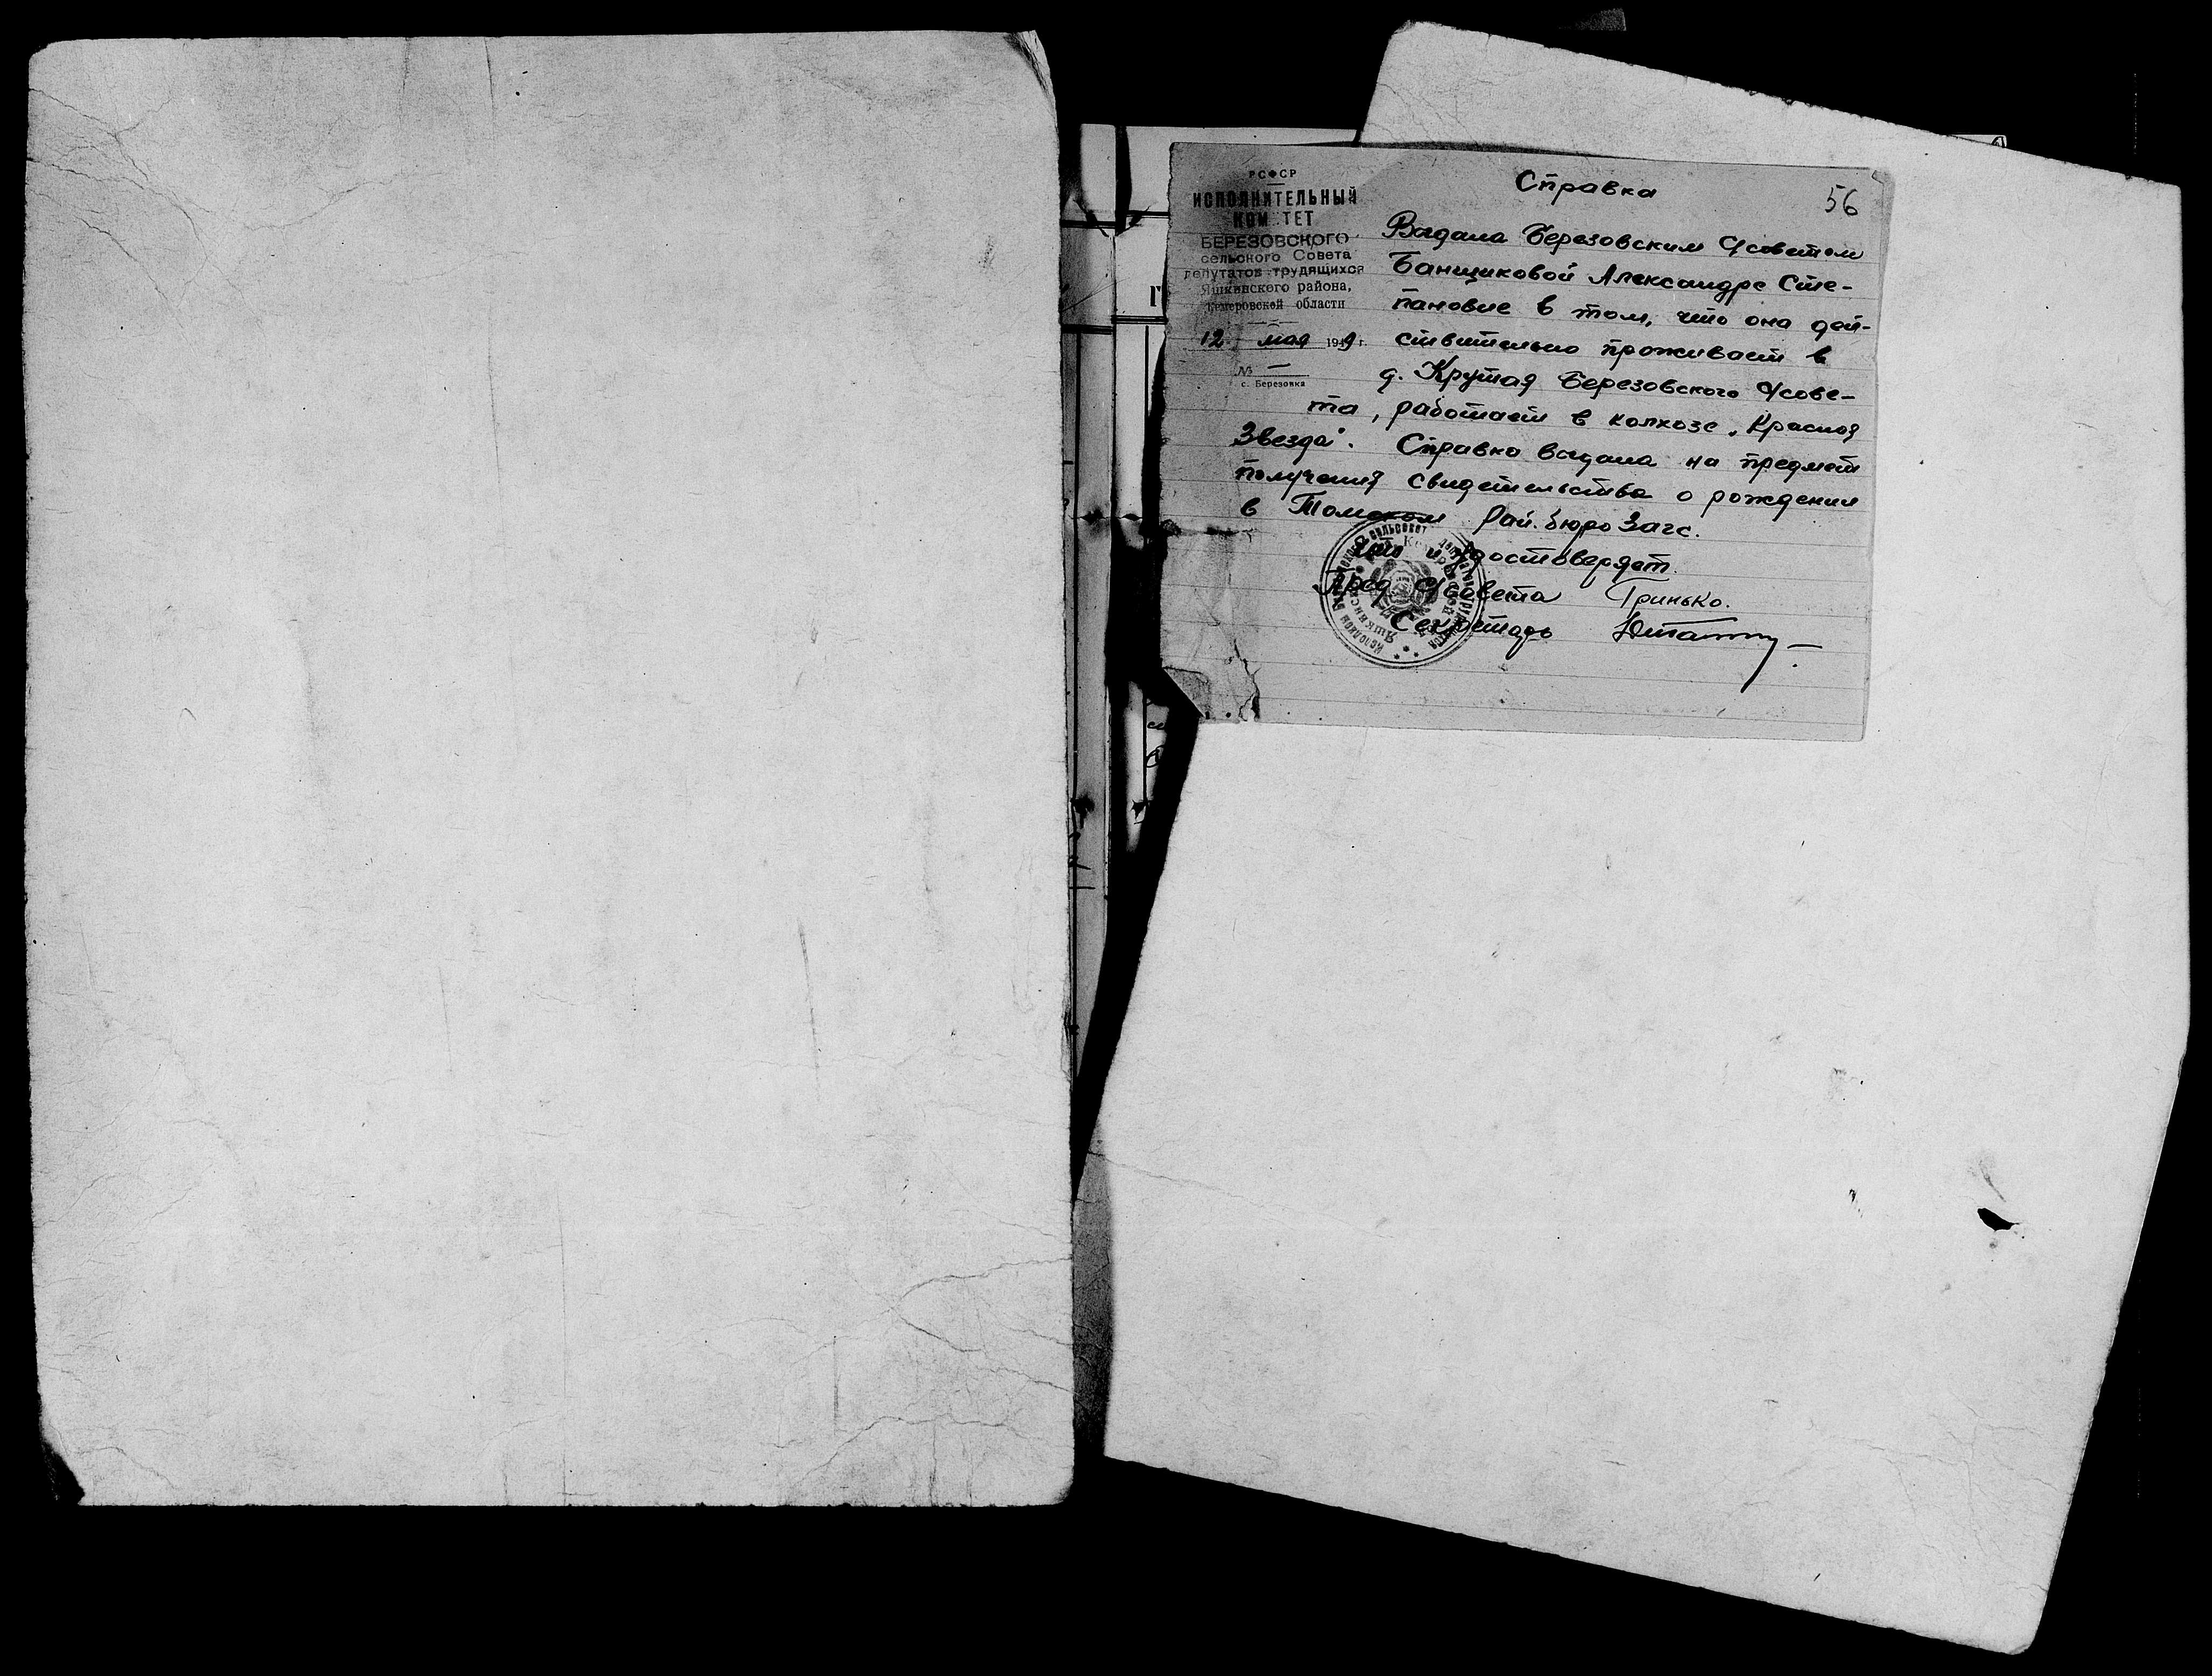 Справка
56
РСФСР
ИСПОЛНИТЕЛЬНЫЙ
КОМ ТЕТ
БЕРЕЗОВСКОГО
сельского Совета
депутатов трудящихся
Яшкинского района,
кемеровской области
12 мая 1949 г.
№ —
с. Березовка
Выдана Березовским с/советом
Банщиковой Александре Сте-
пановне в том, что она дей-
ствительно проживает в
д. Крутая Березовского с/сове-
та, работает в колхозе „Красная
Звезда". Справка выдана на предмет
получения свидетельства о рождении
в Томском Рай. бюро Загс.
что и удостоверяет.
Пред. с/совета Гринько.
Секретарь